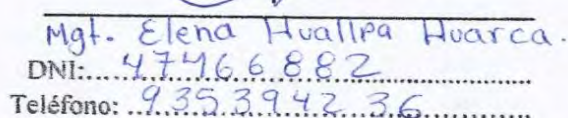 Mgt. Elena Huallpa Huarca.
DNI: 47466882
Teléfono: 935394236